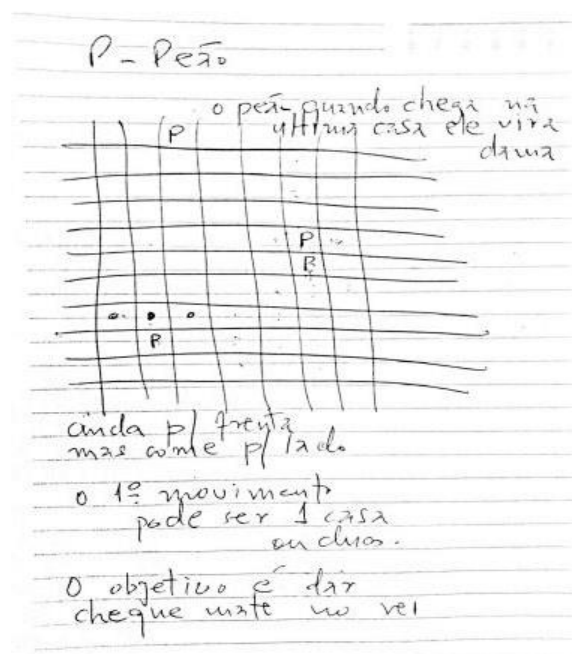 P - Peão
o peão quando chega na
última casa ele vira
dama
P
P
P
P
anda p/ frente
mas come p/ lado
o 1º movimento
pode ser 1 casa
ou duas.
O objetivo é dar
cheque mate no rei